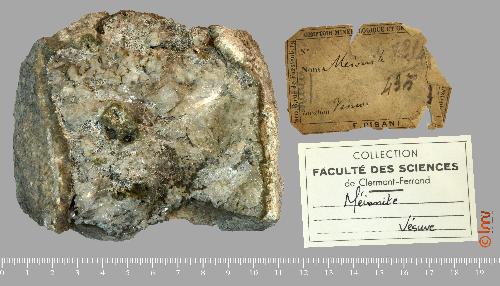 COMPTOIR MINÉRALOGIQUE ET GÉ
N°
Nom Méionite
435
Location Vésuve
F. PISANI
COLLECTION
FACULTÉ DES SCIENCES
de Clermont-Ferrand
Méionite
Vésuve
© lmv
0 1 2 3 4 5 6 7 8 9 10 11 12 13 14 15 16 17 18 19